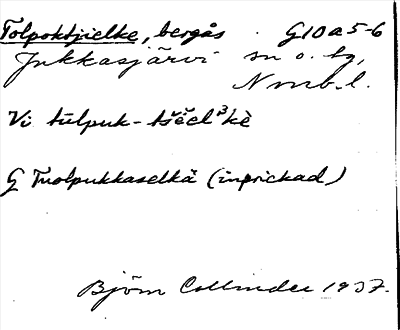 Tolpoktjielke, bergås G10a5-6
Jukkasjärvi sn o. tg,
Nmb. l.
Vi tūlpuk-tšĕĕl³kè
G Tuolpukkaselkä (inprickad)
Björn Collinder 1937.